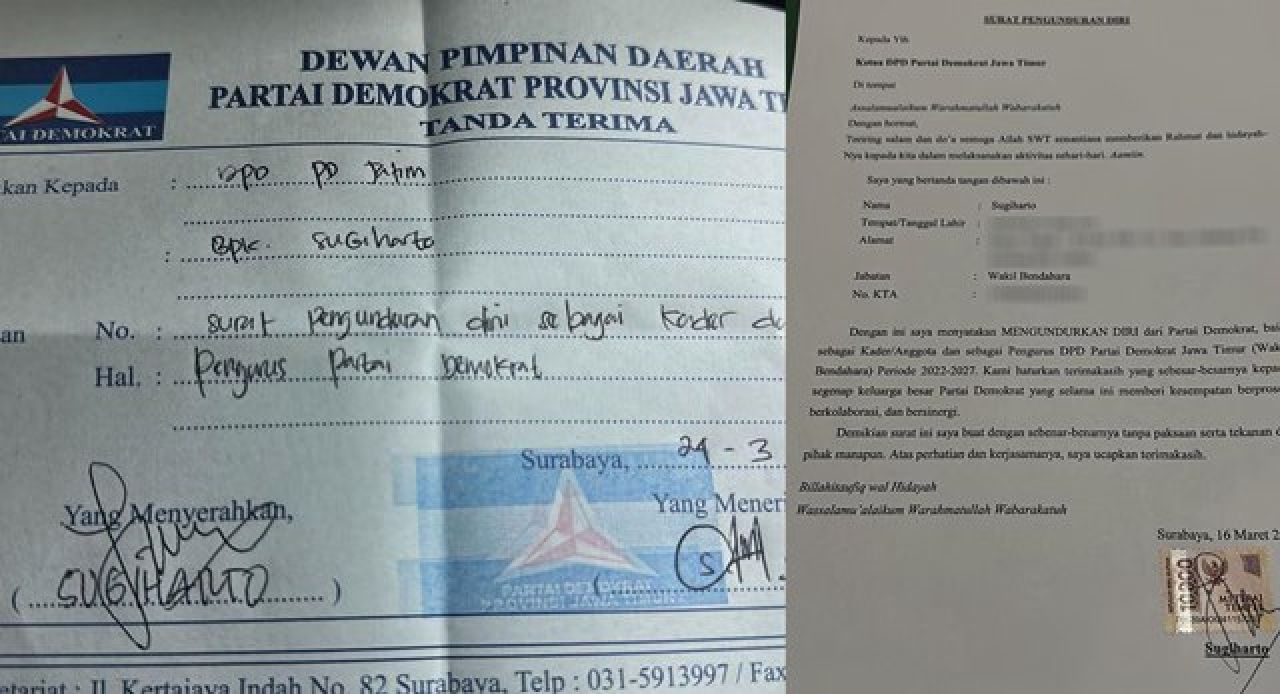 DEWAN PIMPINAN DAERAH
PARTAI DEMOKRAT PROVINSI JAWA TI
TANDA TERIMA
TAI DEMOKRAT
kan Kepada : DPD PD Jatim
: Bpk. Sugiharto
an No. : surat pengunduran diri sebagai kader da
Hal. : pengurus partai Demokrat
Surabaya, 24 - 3
Yang Menyerahkan,
Yang Meneri
( SUGIHARTO )
(
S
PARTAI DEMOKRAT
PROVINSI JAWA TIMUR
etariat : Jl. Kertajaya Indah No. 82 Surabaya, Telp : 031-5913997 / Fax
SURAT PENGUNDURAN DIRI
Kepada Yth
Ketua DPD Partai Demokrat Jawa Timur
Di tempat
Assalamualaikum Warahmatullah Wabarakatuh
Dengan hormat,
Teriring salam dan do'a semoga Allah SWT senantiasa memberikan Rahmat dan hidayah-
Nya kepada kita dalam melaksanakan aktivitas sehari-hari. Aamiin.
Saya yang bertanda tangan dibawah ini :
Nama : Sugiharto
Tempat/Tanggal Lahir :
Alamat :
Jabatan : Wakil Bendahara
No. KTA :
Dengan ini saya menyatakan MENGUNDURKAN DIRI dari Partai Demokrat, bai
sebagai Kader/Anggota dan sebagai Pengurus DPD Partai Demokrat Jawa Timur (Wak
Bendahara) Periode 2022-2027. Kami haturkan terimakasih yang sebesar-besarnya kepa
segenap keluarga besar Partai Demokrat yang selama ini memberi kesempatan berpros
berkolaborasi, dan bersinergi.
Demikian surat ini saya buat dengan sebenar-benarnya tanpa paksaan serta tekanan d
pihak manapun. Atas perhatian dan kerjasamanya, saya ucapkan terimakasih.
Billahitaufiq wal Hidayah
Wassalamu'alaikum Warahmatullah Wabarakatuh
Surabaya, 16 Maret 2
10000
Sugiharto